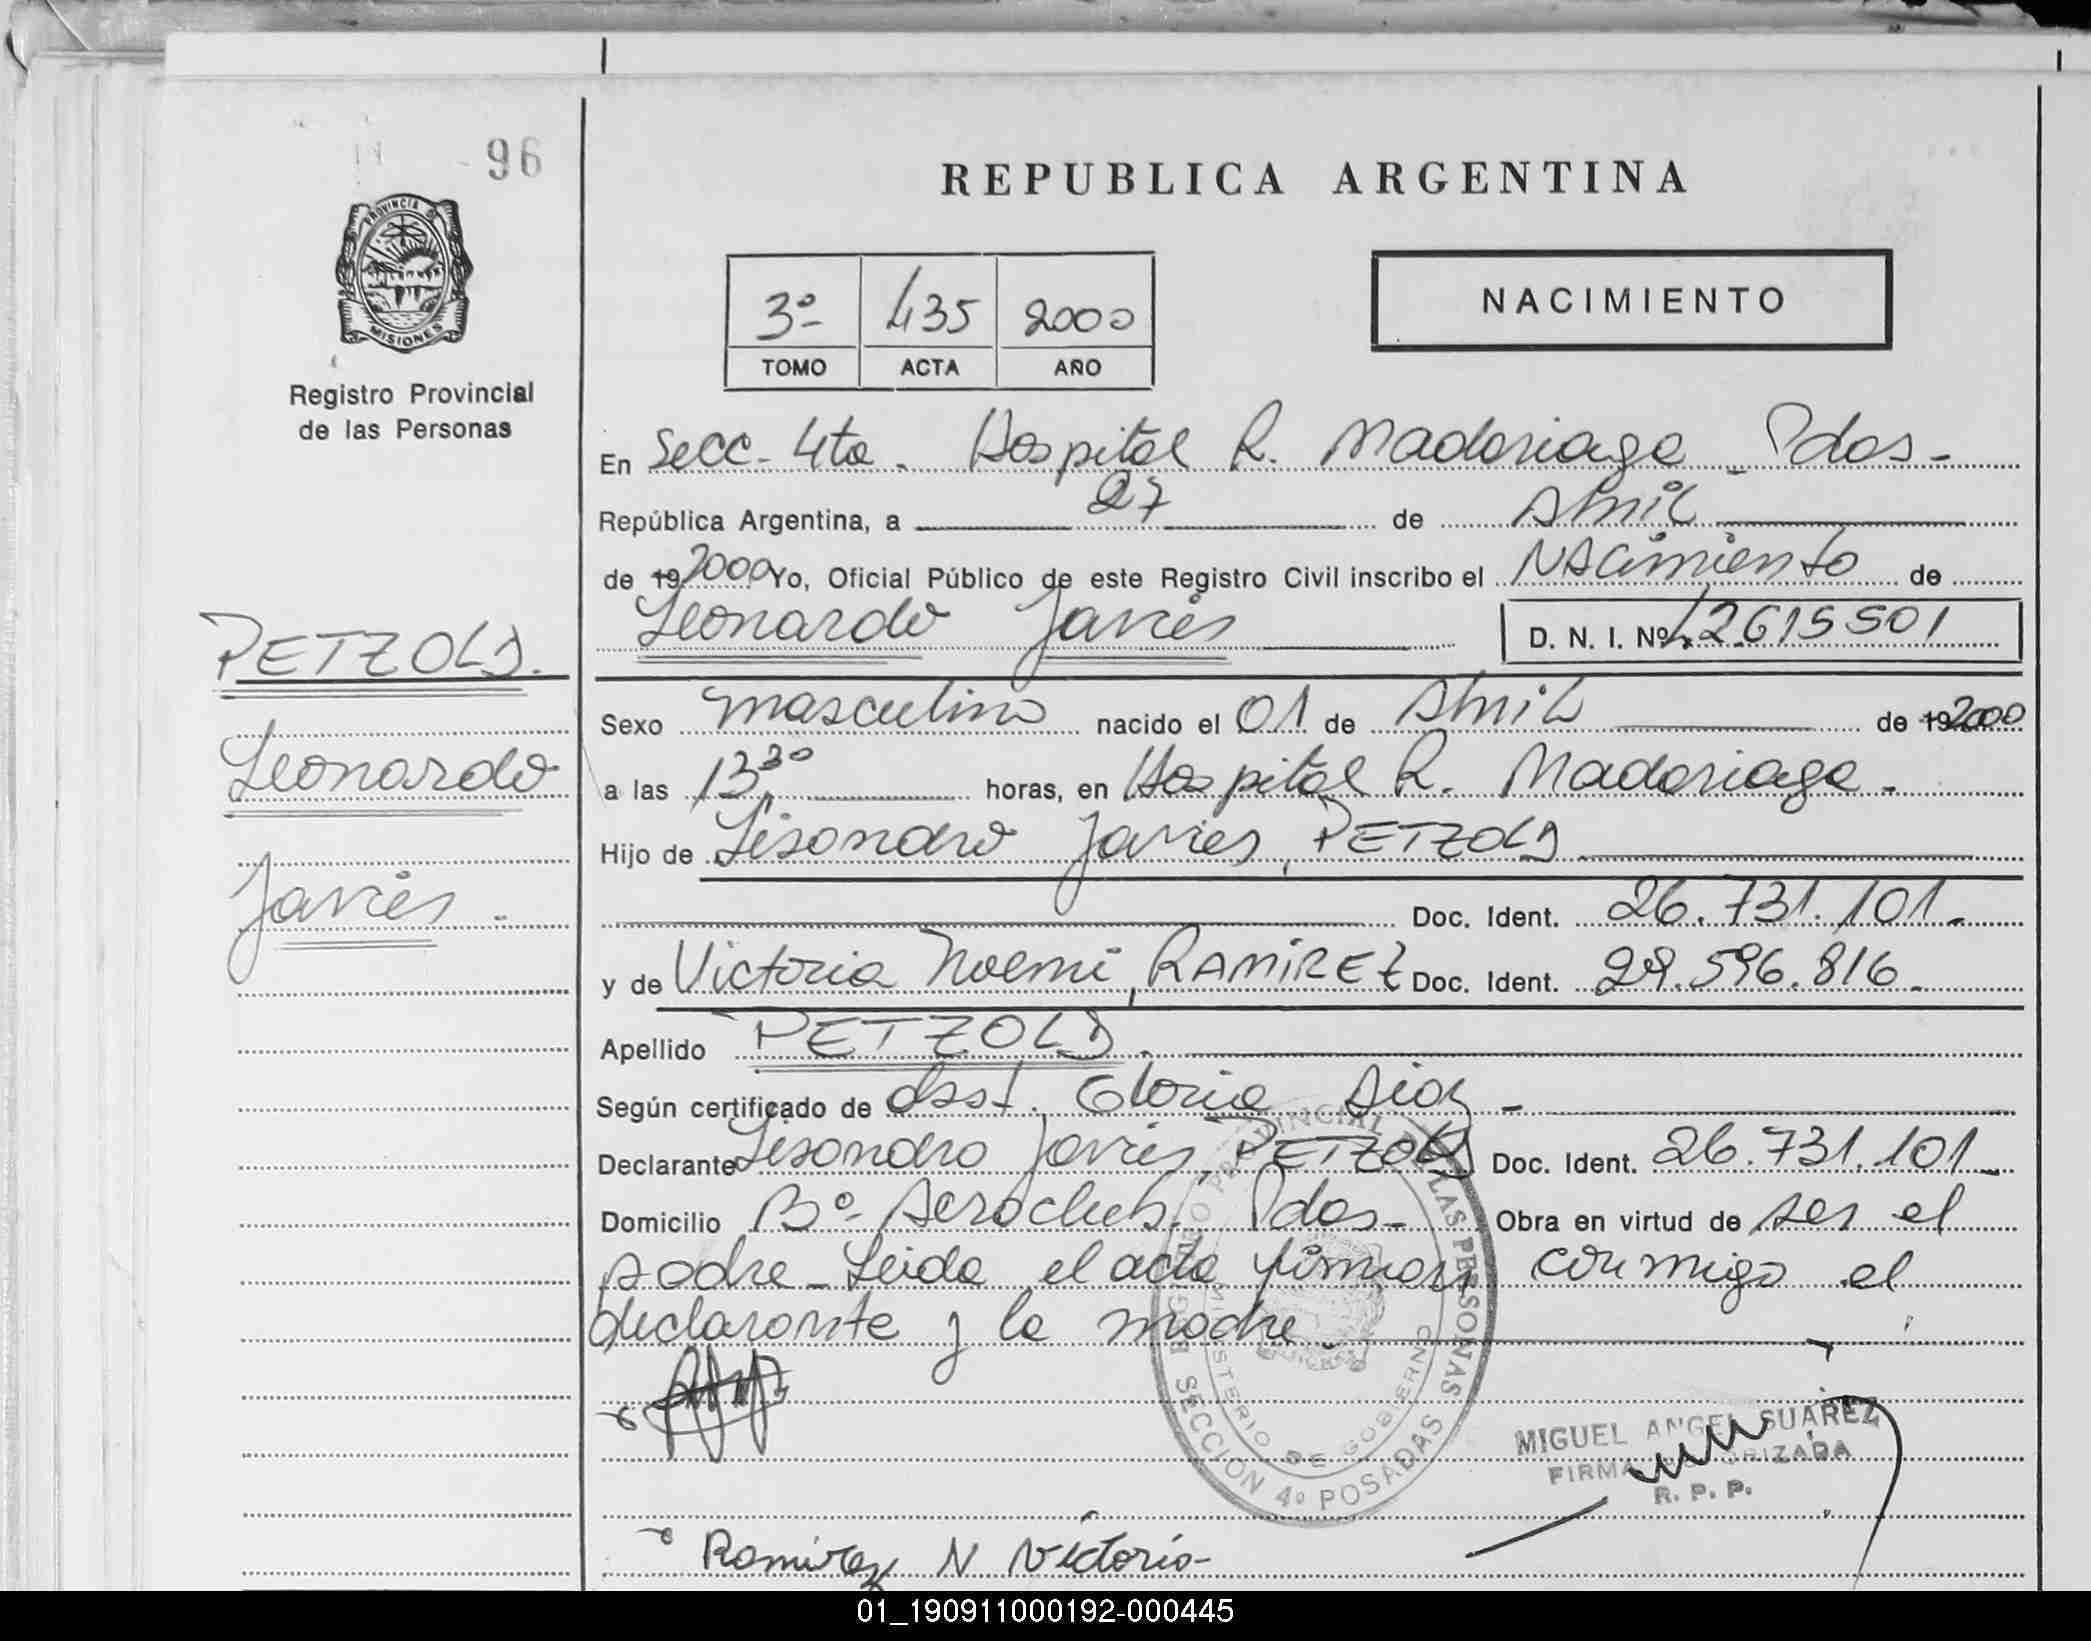 96
PROVINCIA DE
MISIONES
Registro Provincial
de las Personas
PETZOLD.
Leonardo
Javier.-
REPUBLICA ARGENTINA
3º 435 2000
TOMO ACTA AÑO
NACIMIENTO
En Secc. 4ta. Hospital R. Madariaga - Pdas-
República Argentina, a 27 de Abril
de 19 2000 Yo, Oficial Público de este Registro Civil inscribo el Nacimiento de
Leonardo Javier D. N. I. Nº 42615501
Sexo masculino nacido el 01 de Abril de 19 2000
a las 13,30 horas, en Hospital R. Madariaga.
Hijo de Lisandro Javier, PETZOLD
Doc. Ident. 26.731.101.
y de Victoria Noemi, RAMIREZ Doc. Ident. 29.596.816.
Apellido PETZOLD.
Según certificado de Obst. Gloria Diaz -
Declarante Lisandro Javier, PETZOLD Doc. Ident. 26.731.101
Domicilio Bº Aeroclub. Pdas- Obra en virtud de ser el
padre - Leida el acta firman conmigo el
declarante y la madre
REGISTRO PROVINCIAL DE LAS PERSONAS
MINISTERIO DE GOBIERNO
SECCION 4º POSADAS
MIGUEL ANGEL SUAREZ
FIRMA AUTORIZADA
R. P. P.
Ramirez N Victoria-
01_190911000192-000445